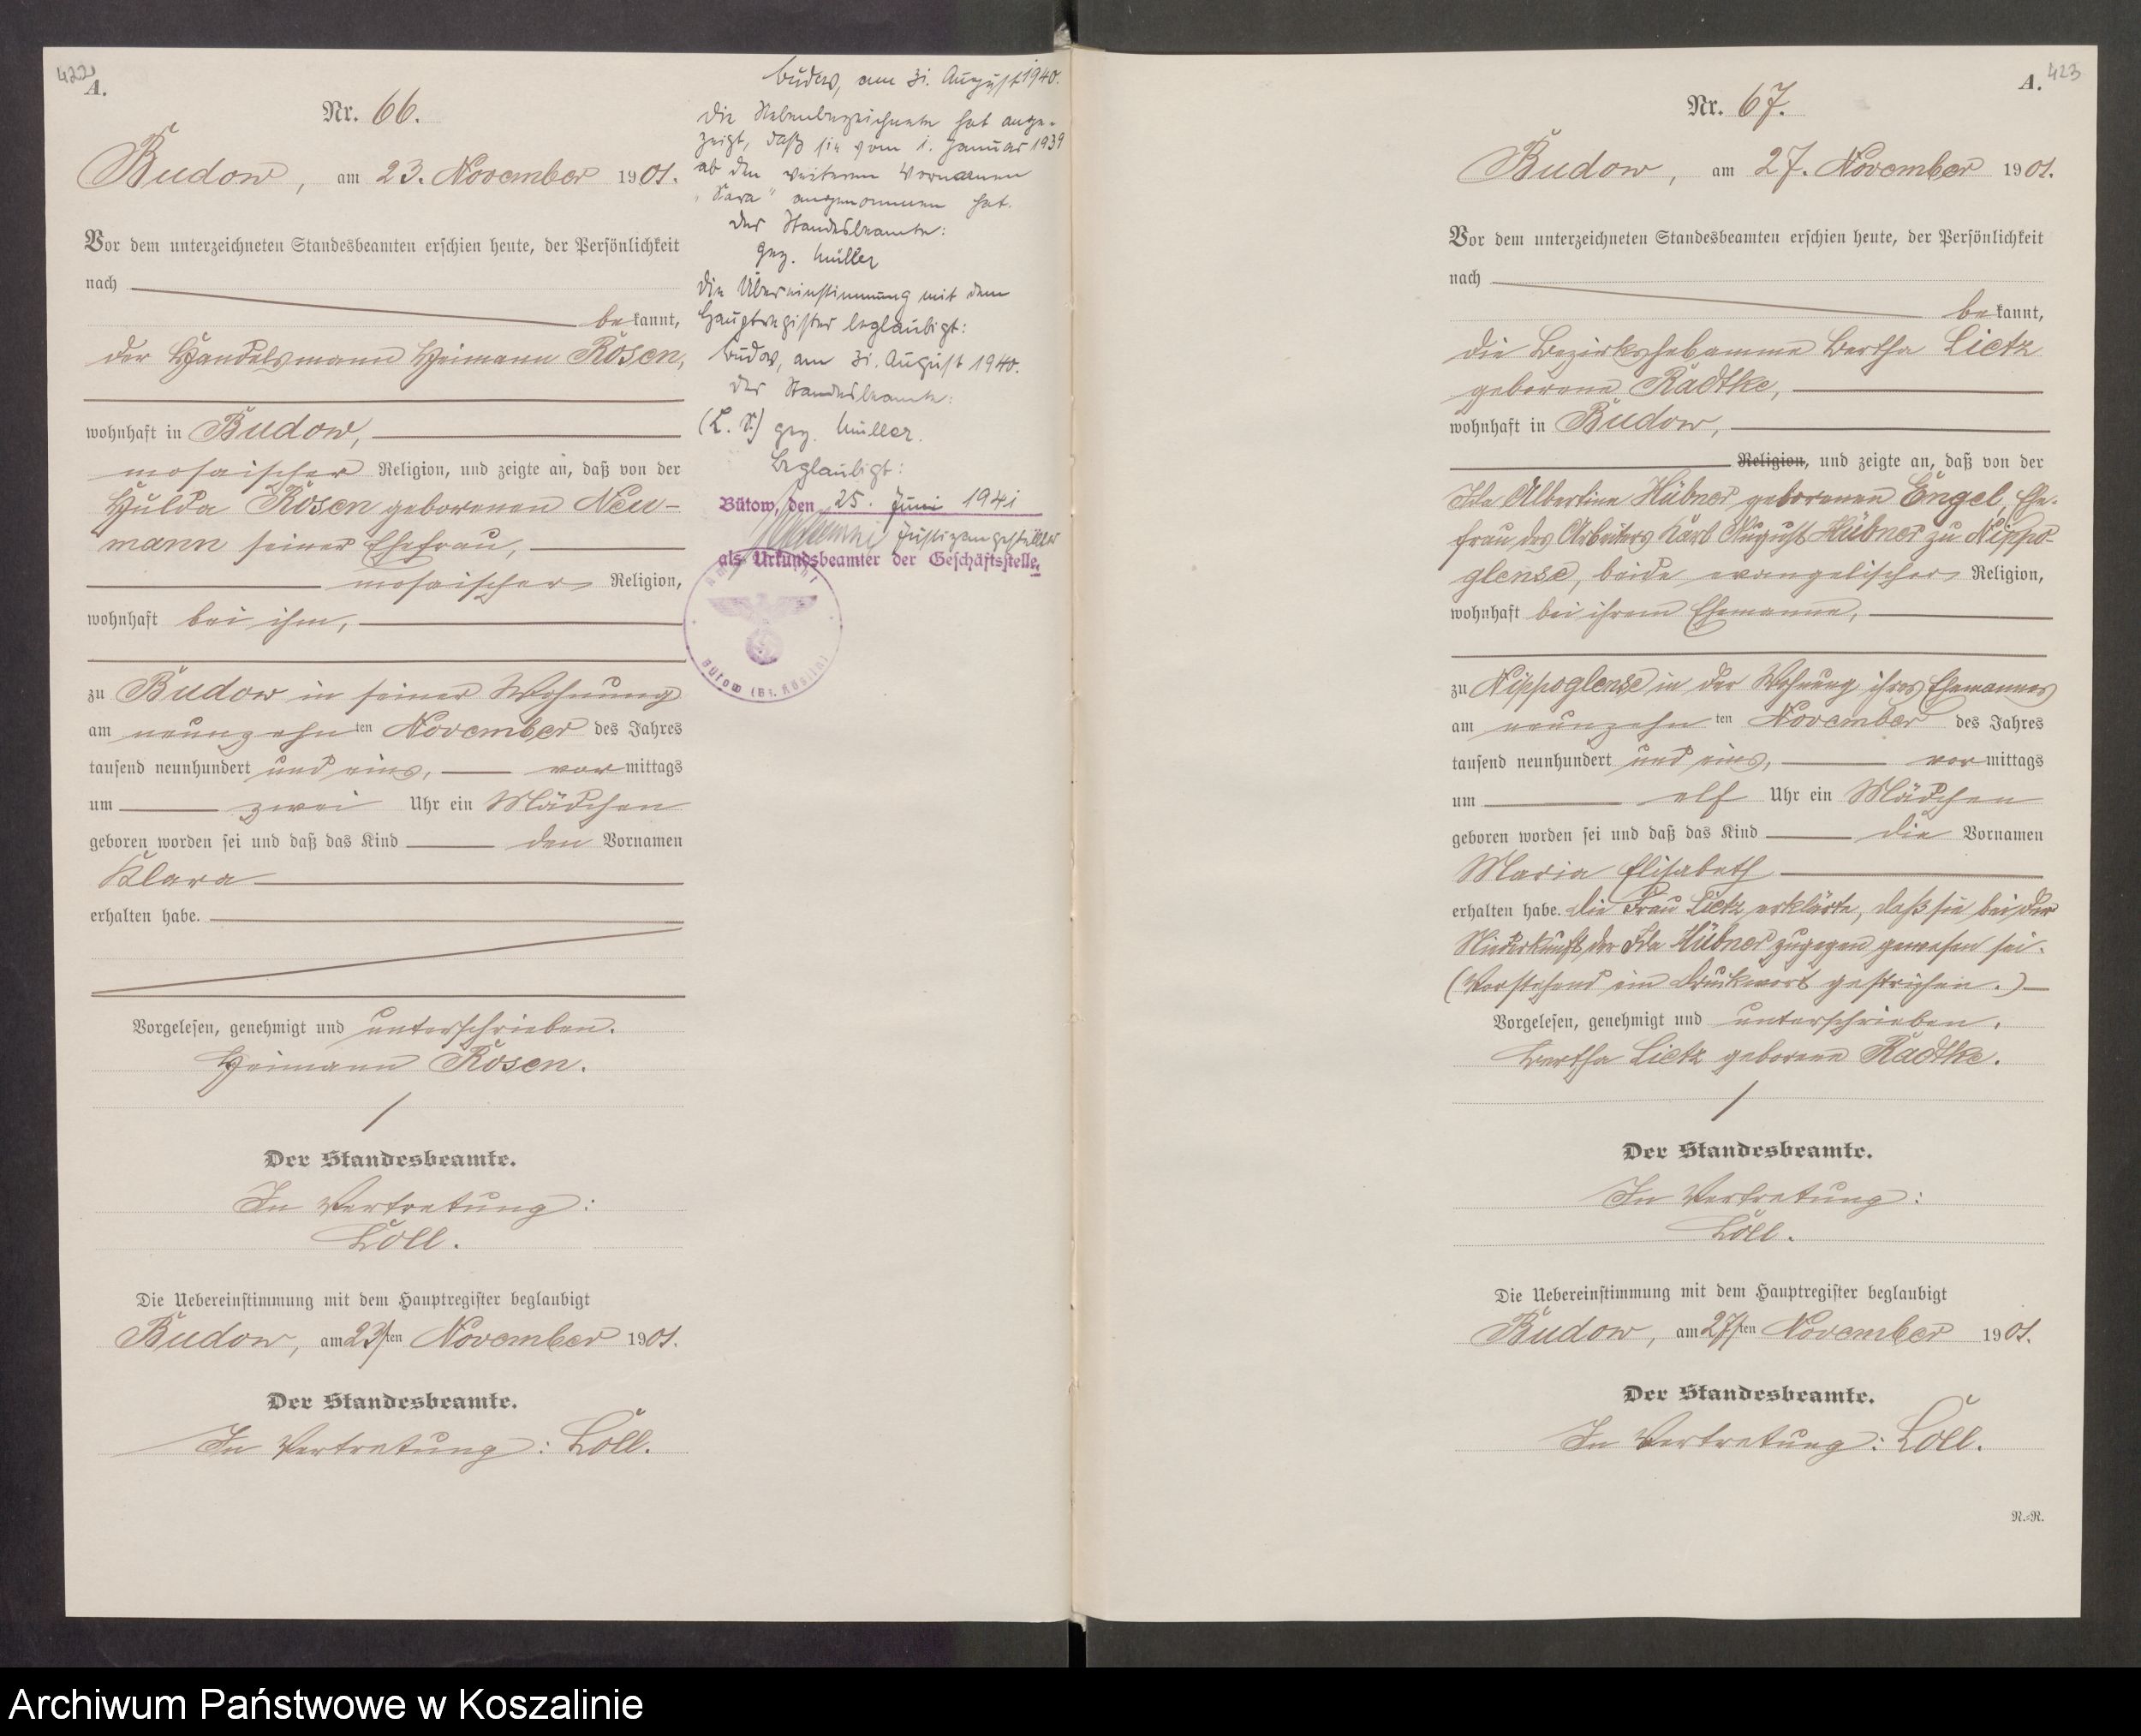 422
A.
Nr. 66.
Budow, am 23. November 1901.
Vor dem unterzeichneten Standesbeamten erschien heute, der Persönlichkeit
nach
bekannt,
der Handelsmann Heimann Rosen,
wohnhaft in Budow,
mosaischer Religion, und zeigte an, daß von der
Hulda Rosen geborenen Neu-
mann seiner Ehefrau,
mosaischer Religion,
wohnhaft bei ihm,
zu Budow in seiner Wohnung
am neunzehnten November des Jahres
tausend neunhundert und eins, vormittags
um zwei Uhr ein Mädchen
geboren worden sei und daß das Kind den Vornamen
Klara
erhalten habe.
Vorgelesen, genehmigt und unterschrieben.
Heimann Rosen.
Der Standesbeamte.
In Vertretung:
Löll.
Die Uebereinstimmung mit dem Hauptregister beglaubigt
Budow, am 23ten November 1901.
Der Standesbeamte.
In Vertretung: Löll.
Budow, am 31. August 1940.
Die Nebenbezeichnete hat ange-
zeigt, daß sie vom 1. Januar 1939
ab den weiteren Vornamen
"Sara" angenommen hat.
Der Standesbeamte:
gez. Müller
Die Übereinstimmung mit dem
Hauptregister beglaubigt:
Budow, am 31. August 1940.
Der Standesbeamte:
(L. S.) gez. Müller.
Beglaubigt:
Bütow, den 25. Juni 1941
Justizangestellter
als Urkundsbeamter der Geschäftsstelle.
Bütow (Bz. Köslin)
423
A.
Nr. 67.
Budow, am 27. November 1901.
Vor dem unterzeichneten Standesbeamten erschien heute, der Persönlichkeit
nach
bekannt,
die Bezirkshebamme Bertha Lietz
geborene Radtke,
wohnhaft in Budow,
Religion, und zeigte an, daß von der
Ida Albertine Hübner geborenen Engel, Ehe-
frau des Arbeiters Karl August Hübner zu Nippo-
glense, beide evangelischer Religion,
wohnhaft bei ihrem Ehemanne,
zu Nippoglense in der Wohnung ihres Ehemannes
am neunzehnten November des Jahres
tausend neunhundert und eins, vormittags
um elf Uhr ein Mädchen
geboren worden sei und daß das Kind die Vornamen
Maria Elisabeth
erhalten habe. Die Frau Lietz erklärte, daß sie bei der
Niederkunft der Ida Hübner zugegen gewesen sei.
(Vorstehend ein Druckwort gestrichen.)
Vorgelesen, genehmigt und unterschrieben.
Bertha Lietz geborene Radtke.
Der Standesbeamte.
In Vertretung:
Löll.
Die Uebereinstimmung mit dem Hauptregister beglaubigt
Budow, am 27ten November 1901.
Der Standesbeamte.
In Vertretung: Löll.
N.=R.
Archiwum Państwowe w Koszalinie